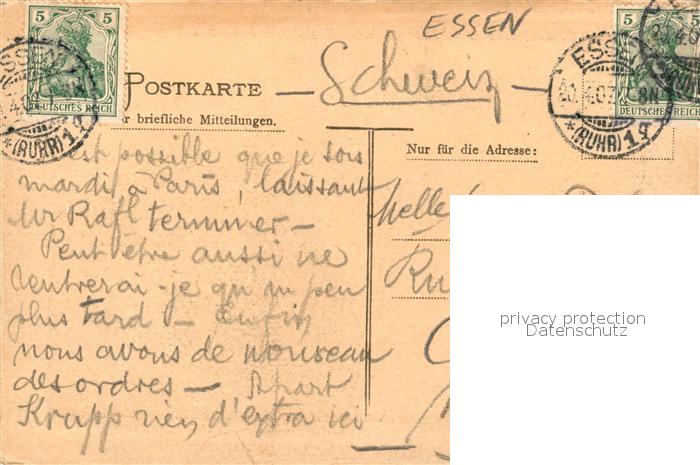 ESSEN
5 5
5
DEUTSCHES REICH
DEUTSCHES REICH
ESSEN
(RUHR) 1
ESSEN
20.4.07. 8-
*(RUHR) 1
POSTKARTE
— Schweiz —
briefliche Mitteilungen.
Nur für die Adresse:
est possible que je sois
mardi à Paris, laissant
Mr Rafl terminer —
Peut être aussi ne
rentrerai-je qu'un peu
plus tard — Enfin
nous avons de nouveau
des ordres — Apart
Krupp rien d'extra ici
Melle
privacy protection
Datenschutz